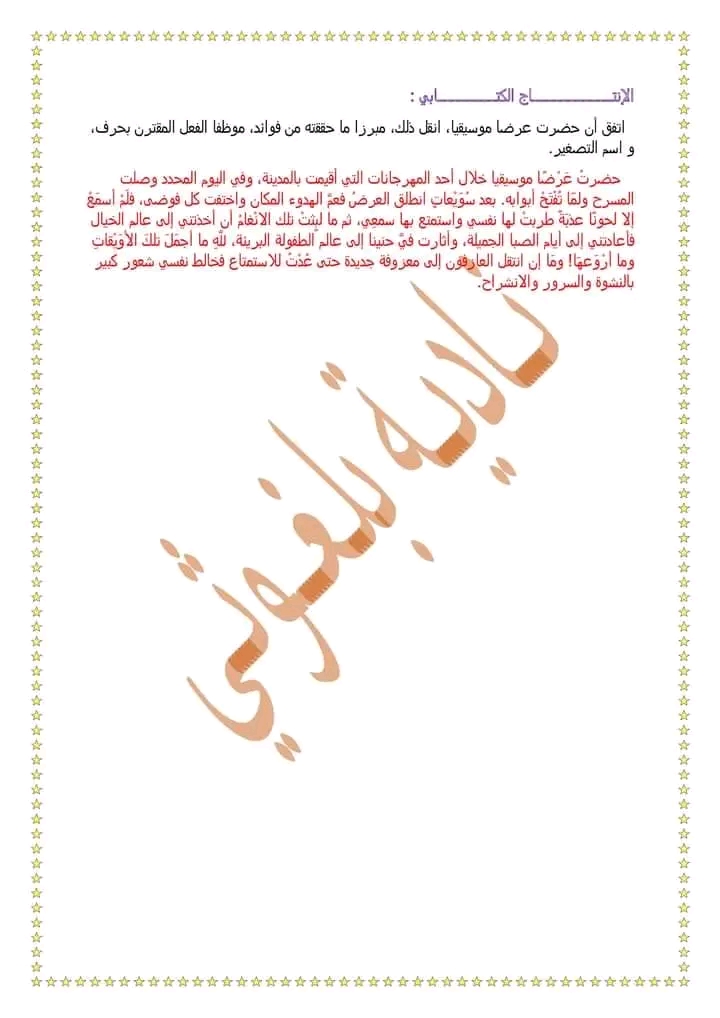 الإنتـــــــــــــاج الكتـــــــــــابي :
اتفق أن حضرت عرضا موسيقيا، انقل ذلك، مبرزا ما حققته من فوائد، موظفا الفعل المقترن بحرف،
و اسم التصغير.
حضرتُ عَرْضًا موسيقيا خلال أحد المهرجانات التي أقيمت بالمدينة، وفي اليوم المحدد وصلت
المسرح ولمَا تُفْتَحْ أبوابه. بعد سُوَيْعاتٍ انطلق العرضُ فعمَّ الهدوء المكان واختفت كل فوضى، فلَمْ أسمَعْ
إلا لحونًا عذبَةً طربتْ لها نفسي واستمتع بها سمعِي، ثم ما لبِثتْ تلك الانْغامُ أن أخذتني إلى عالم الخيال
فأعادتني إلى أيام الصبا الجميلة، وأثارت فيَّ حنينا إلى عالم الطفولة البريئة، للَّهِ ما أجمَلَ تلكَ الأوَيْقاتِ
وما أرْوَعهَا! ومَا إن انتقل العازفون إلى معزوفة جديدة حتى عُدْتُ للاستمتاع فخالط نفسي شعور كبير
بالنشوة والسرور والانشراح.
نادية بلغوثي